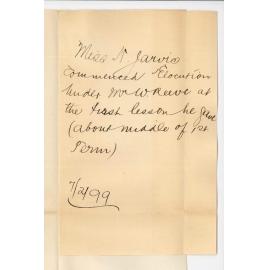 Miss N. Jarvis
commenced Elocution
under Mr W. Reeve at
the first lesson he gave
(about middle of 1st
Term)
7/2/99